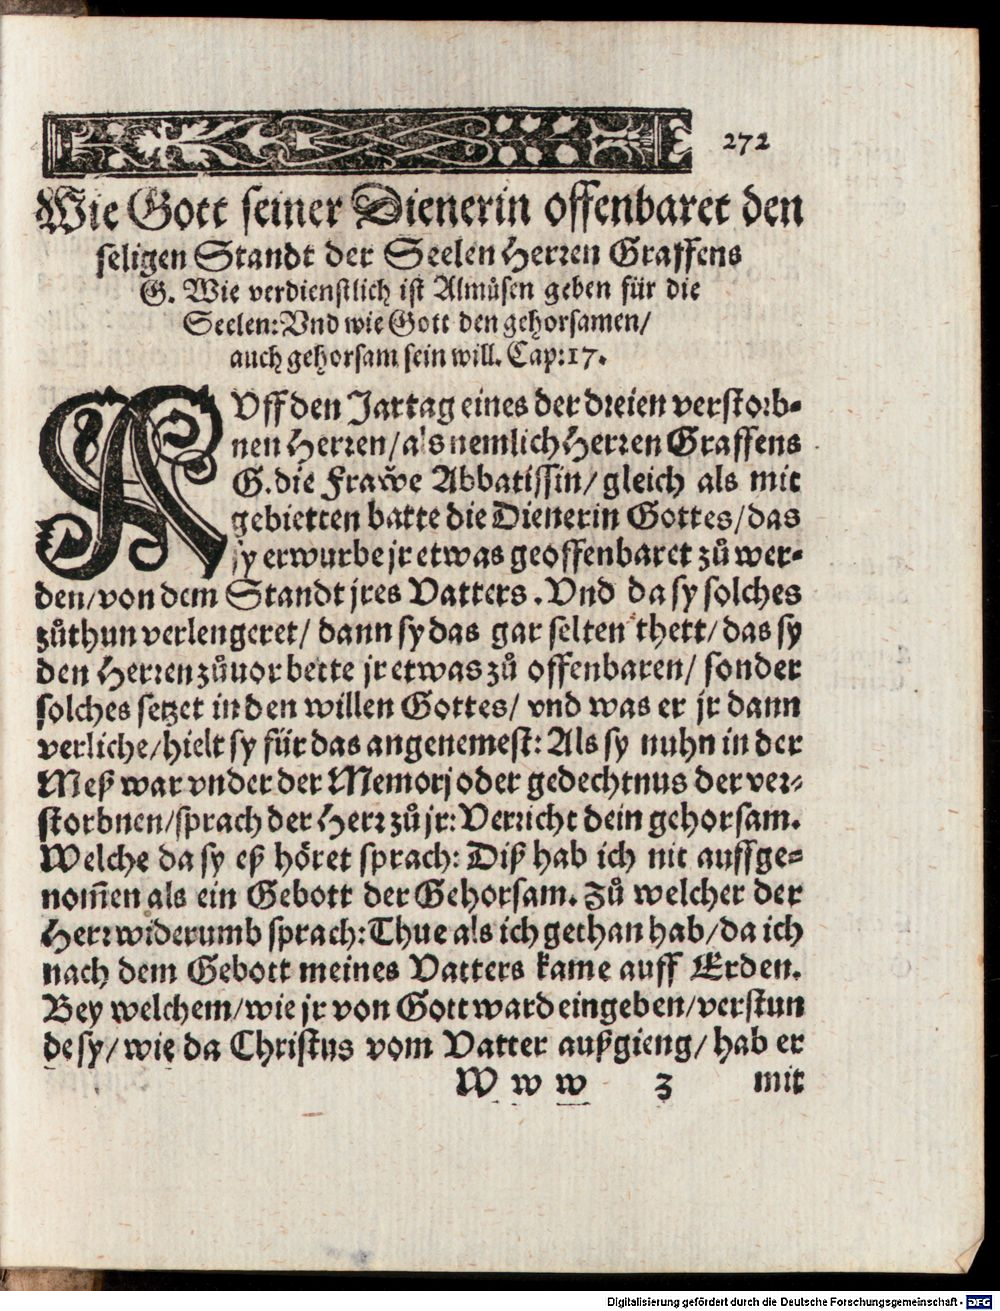 272
Wie Gott seiner Dienerin offenbaret den
seligen Standt der Seelen Herren Graffens
G. Wie verdienstlich ist Almůsen geben für die
Seelen: Vnd wie Gott den gehorsamen/
auch gehorsam sein will. Cap: 17.
AVff den Jartag eines der dreien verstorb-
nen Herren/ als nemlich Herren Graffens
G. die Frawe Abbatissin/ gleich als mit
gebietten batte die Dienerin Gottes/ das
sy erwurbe jr etwas geoffenbaret zů wer-
den/ von dem Standt jres Vatters. Vnd da sy solches
zůthun verlengeret/ dann sy das gar selten thett/ das sy
den Herren zůuor bette jr etwas zů offenbaren/ sonder
solches setzet in den willen Gottes/ vnd was er jr dann
verliche/ hielt sy für das angenemest: Als sy nuhn in der
Meß war vnder der Memorj oder gedechtnus der ver-
storbnen/ sprach der Herr zů jr: Verricht dein gehorsam.
Welche da sy eß höret sprach: Diß hab ich nit auffge-
nom̃en als ein Gebott der Gehorsam. Zů welcher der
Herr widerumb sprach: Thue als ich gethan hab/ da ich
nach dem Gebott meines Vatters kame auff Erden.
Bey welchem/ wie jr von Gott ward eingeben/ verstun
de sy/ wie da Christus vom Vatter außgieng/ hab er
W w w 3 mit
Digitalisierung gefördert durch die Deutsche Forschungsgemeinschaft - DFG